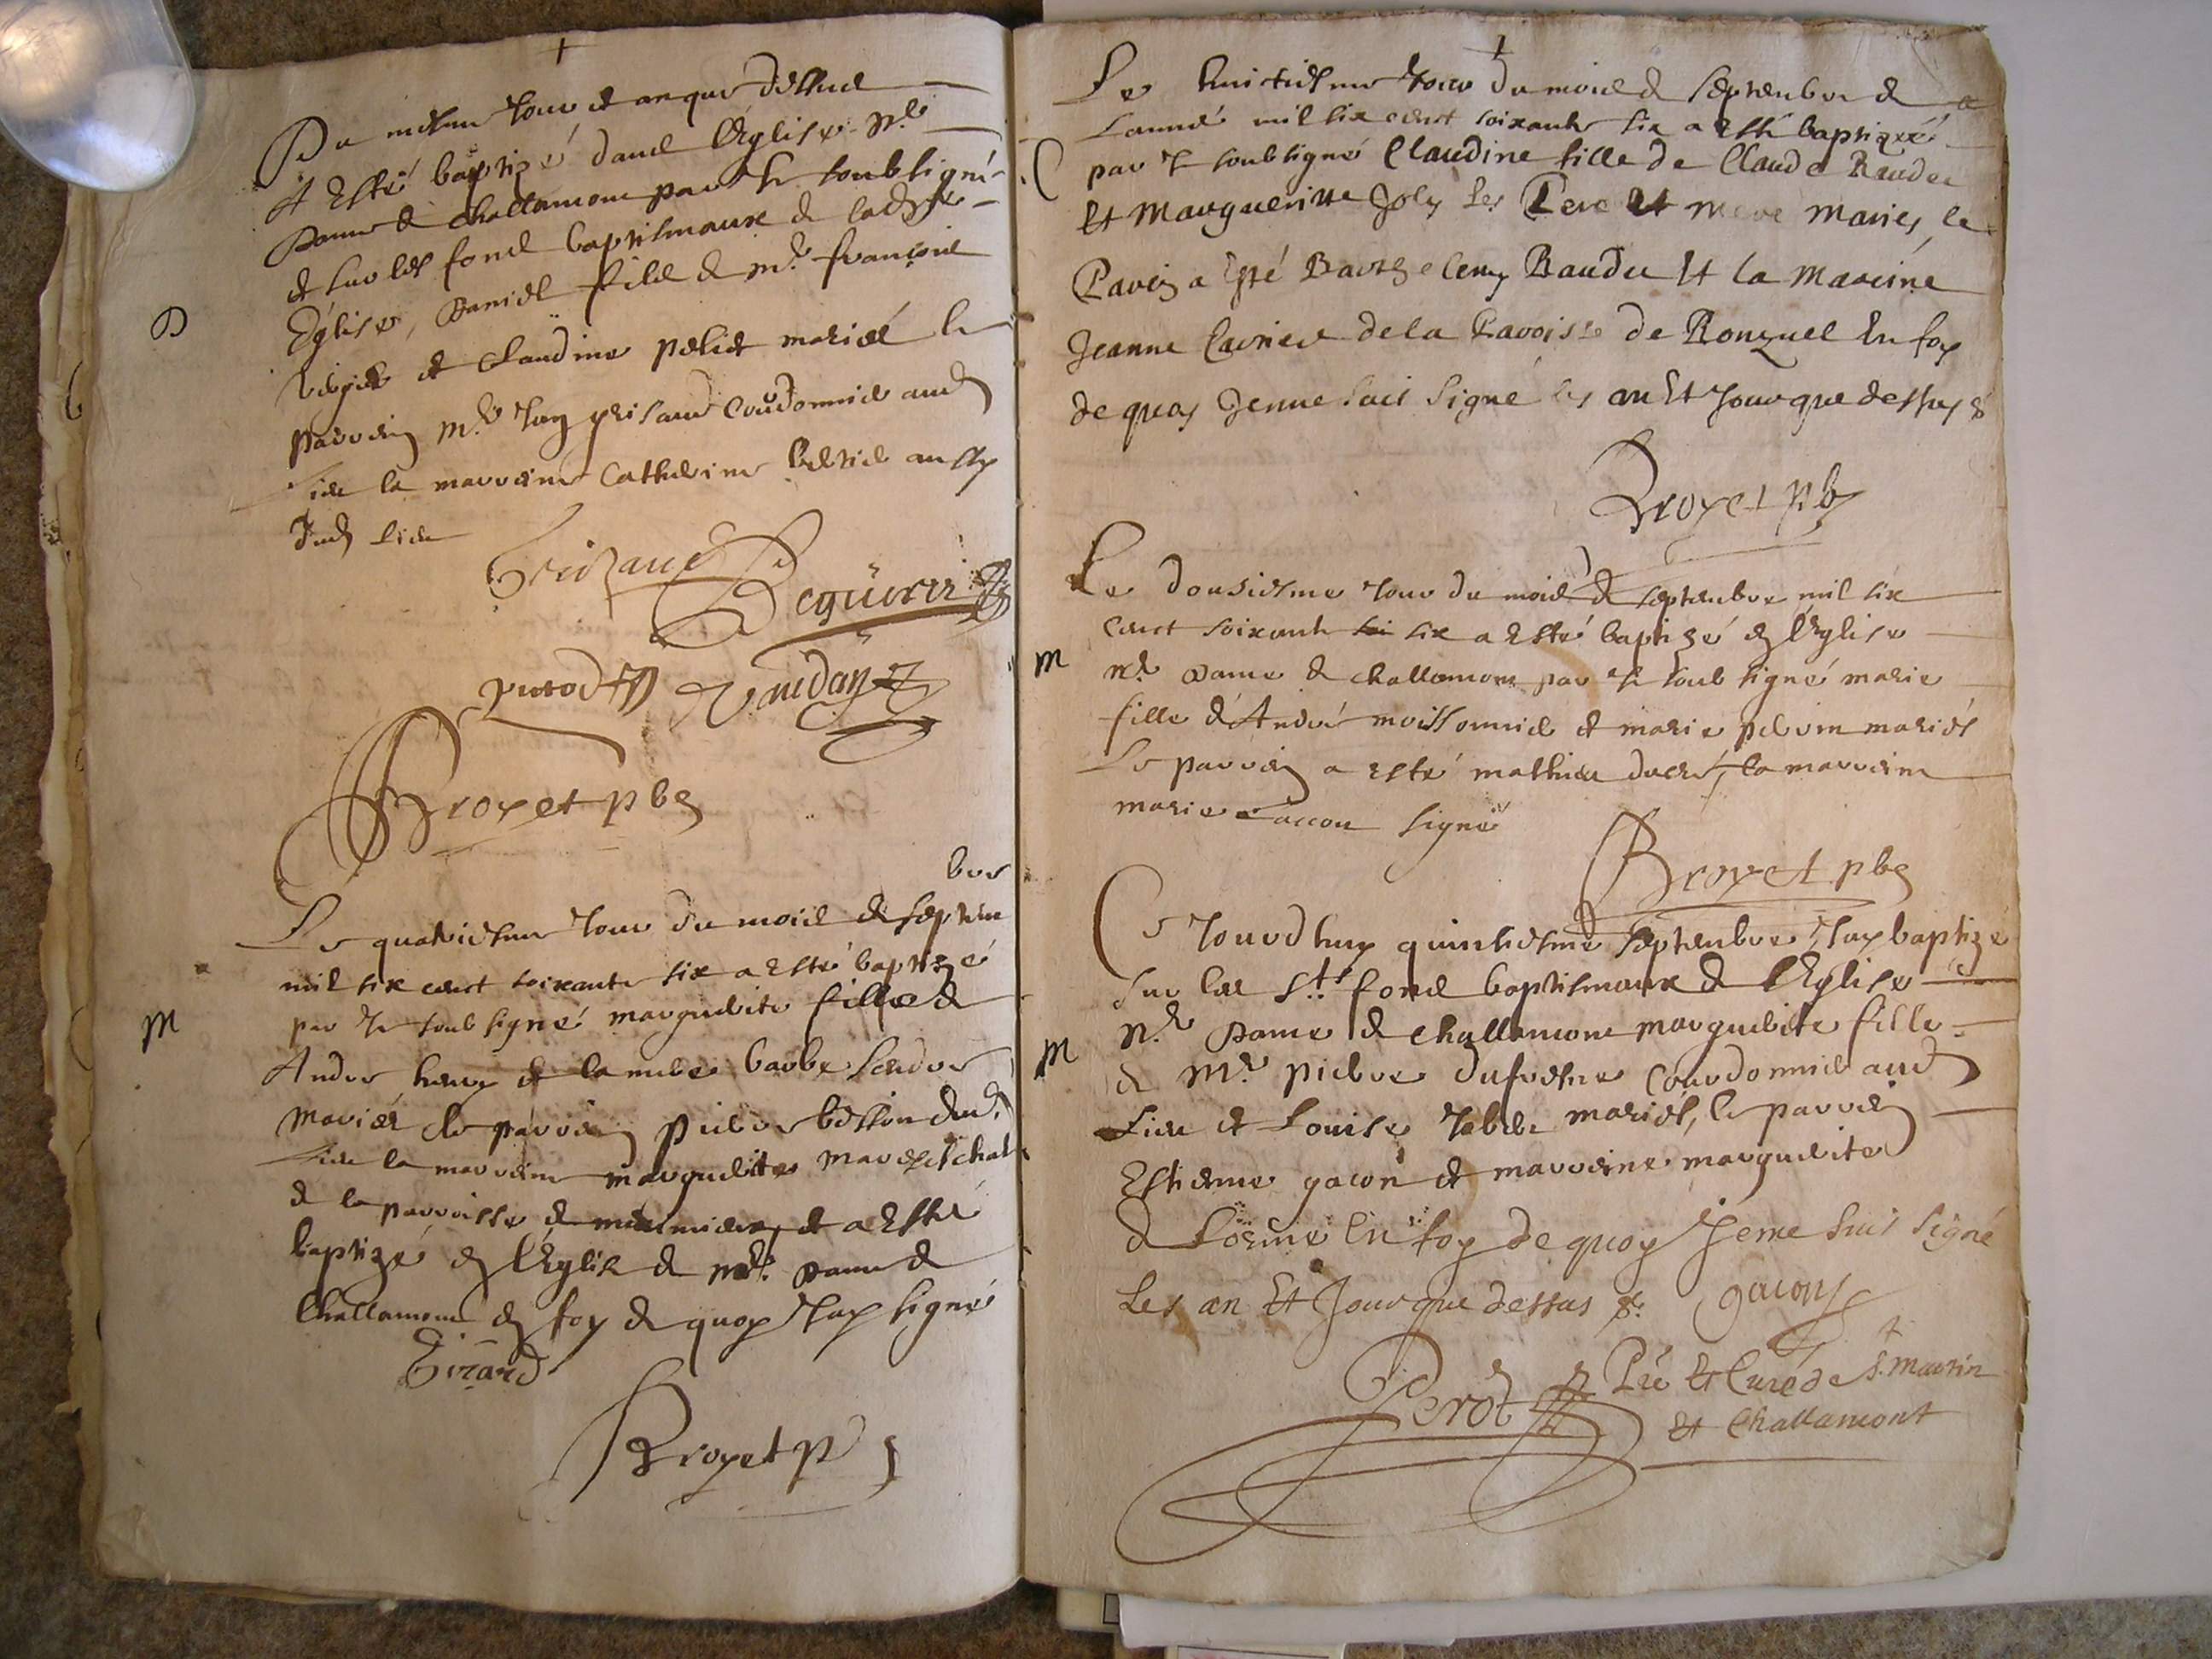 Du mesme Jour et an que dessus
A Esté baptizé dans l'Eglise nre
Dame de challamont par Je soubsigné
et sur les fons baptismaux de ladite
Eglise, Daniel fils de mr françois
et Claudine mariés le
D
parrein mre courdonnier aud
lieu la marreine Catherine aussy
dud lieu
Broyet pbr
bre
Le quatriesme Jour du mois de septem
mil six cent soixante six a Esté baptizé
par Je soubsigné marguerite fille de
M
Andre henry et barbe
mariés le parrein pierre besson dud.
lieu la marreine marguerite mareschal
de la parroisse de et a Esté
baptizé en l'Eglise de nre. Dame de
Challamont en foy de quoy J'ay signé
Girard
Broyet p
Le huictiesme Jour du mois de septembre de
L'année mil six cent soixante six a Esté baptizée
C
par Je soubsigné Claudine fille de Claude Baudu
Et Margueritte Joly Ses Pere Et mere Mariés, le
Parein a Esté Bartgelemy Baudu Et la Mareine
Jeanne de la Paroisse de Ronzuel En foy
de quoy Jenne suis Signé les an Et Jour que dessus &
Broyet pb
Le dousiesme Jour du mois de septembre mil six
cent soixante six a Esté baptizé en l'Eglise
M
nre Dame de challamont par Je soub signé marie
fille d'André moissonnier et marie perrin mariés
Le parrein a esté mathieu ducré, la marreine
marie Laccon signé
Broyet pbr
Ce Jourdhuy quinsiesme septembre J'ay baptizé
sur les sts fons baptismaux de l'Eglise
nre Dame de challamont marguerite fille
M
de Mre pierre dufresne Courdonnier aud
Lieu et Louise mariés, le parrein
Estienne gacon et marreine marguerite
de En foy de quoy Jeme suis signé
Les an Et Jour que dessus &. gacon
Perod Pre Et Curé de St. Martin
Et Challamont